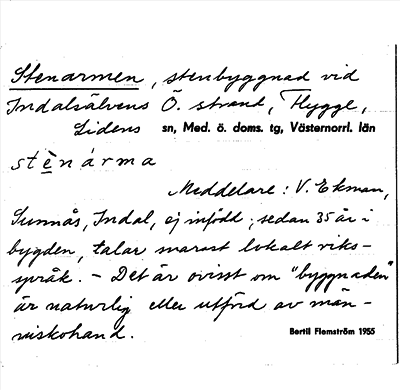 Stenarmen, stenbyggnad vid
Indalsälvens Ö. strand, Flygge,
Lidens sn, Med. ö. doms. tg, Västernorrl. län
stènárma
Meddelare: V. Ekman,
Sunnås, Indal, ej infödd; sedan 35 år i
bygden, talar snarast lokalt riks-
språk. – Det är ovisst om "byggnaden"
är naturlig eller utförd av män-
niskohand.
Bertil Flemström 1955